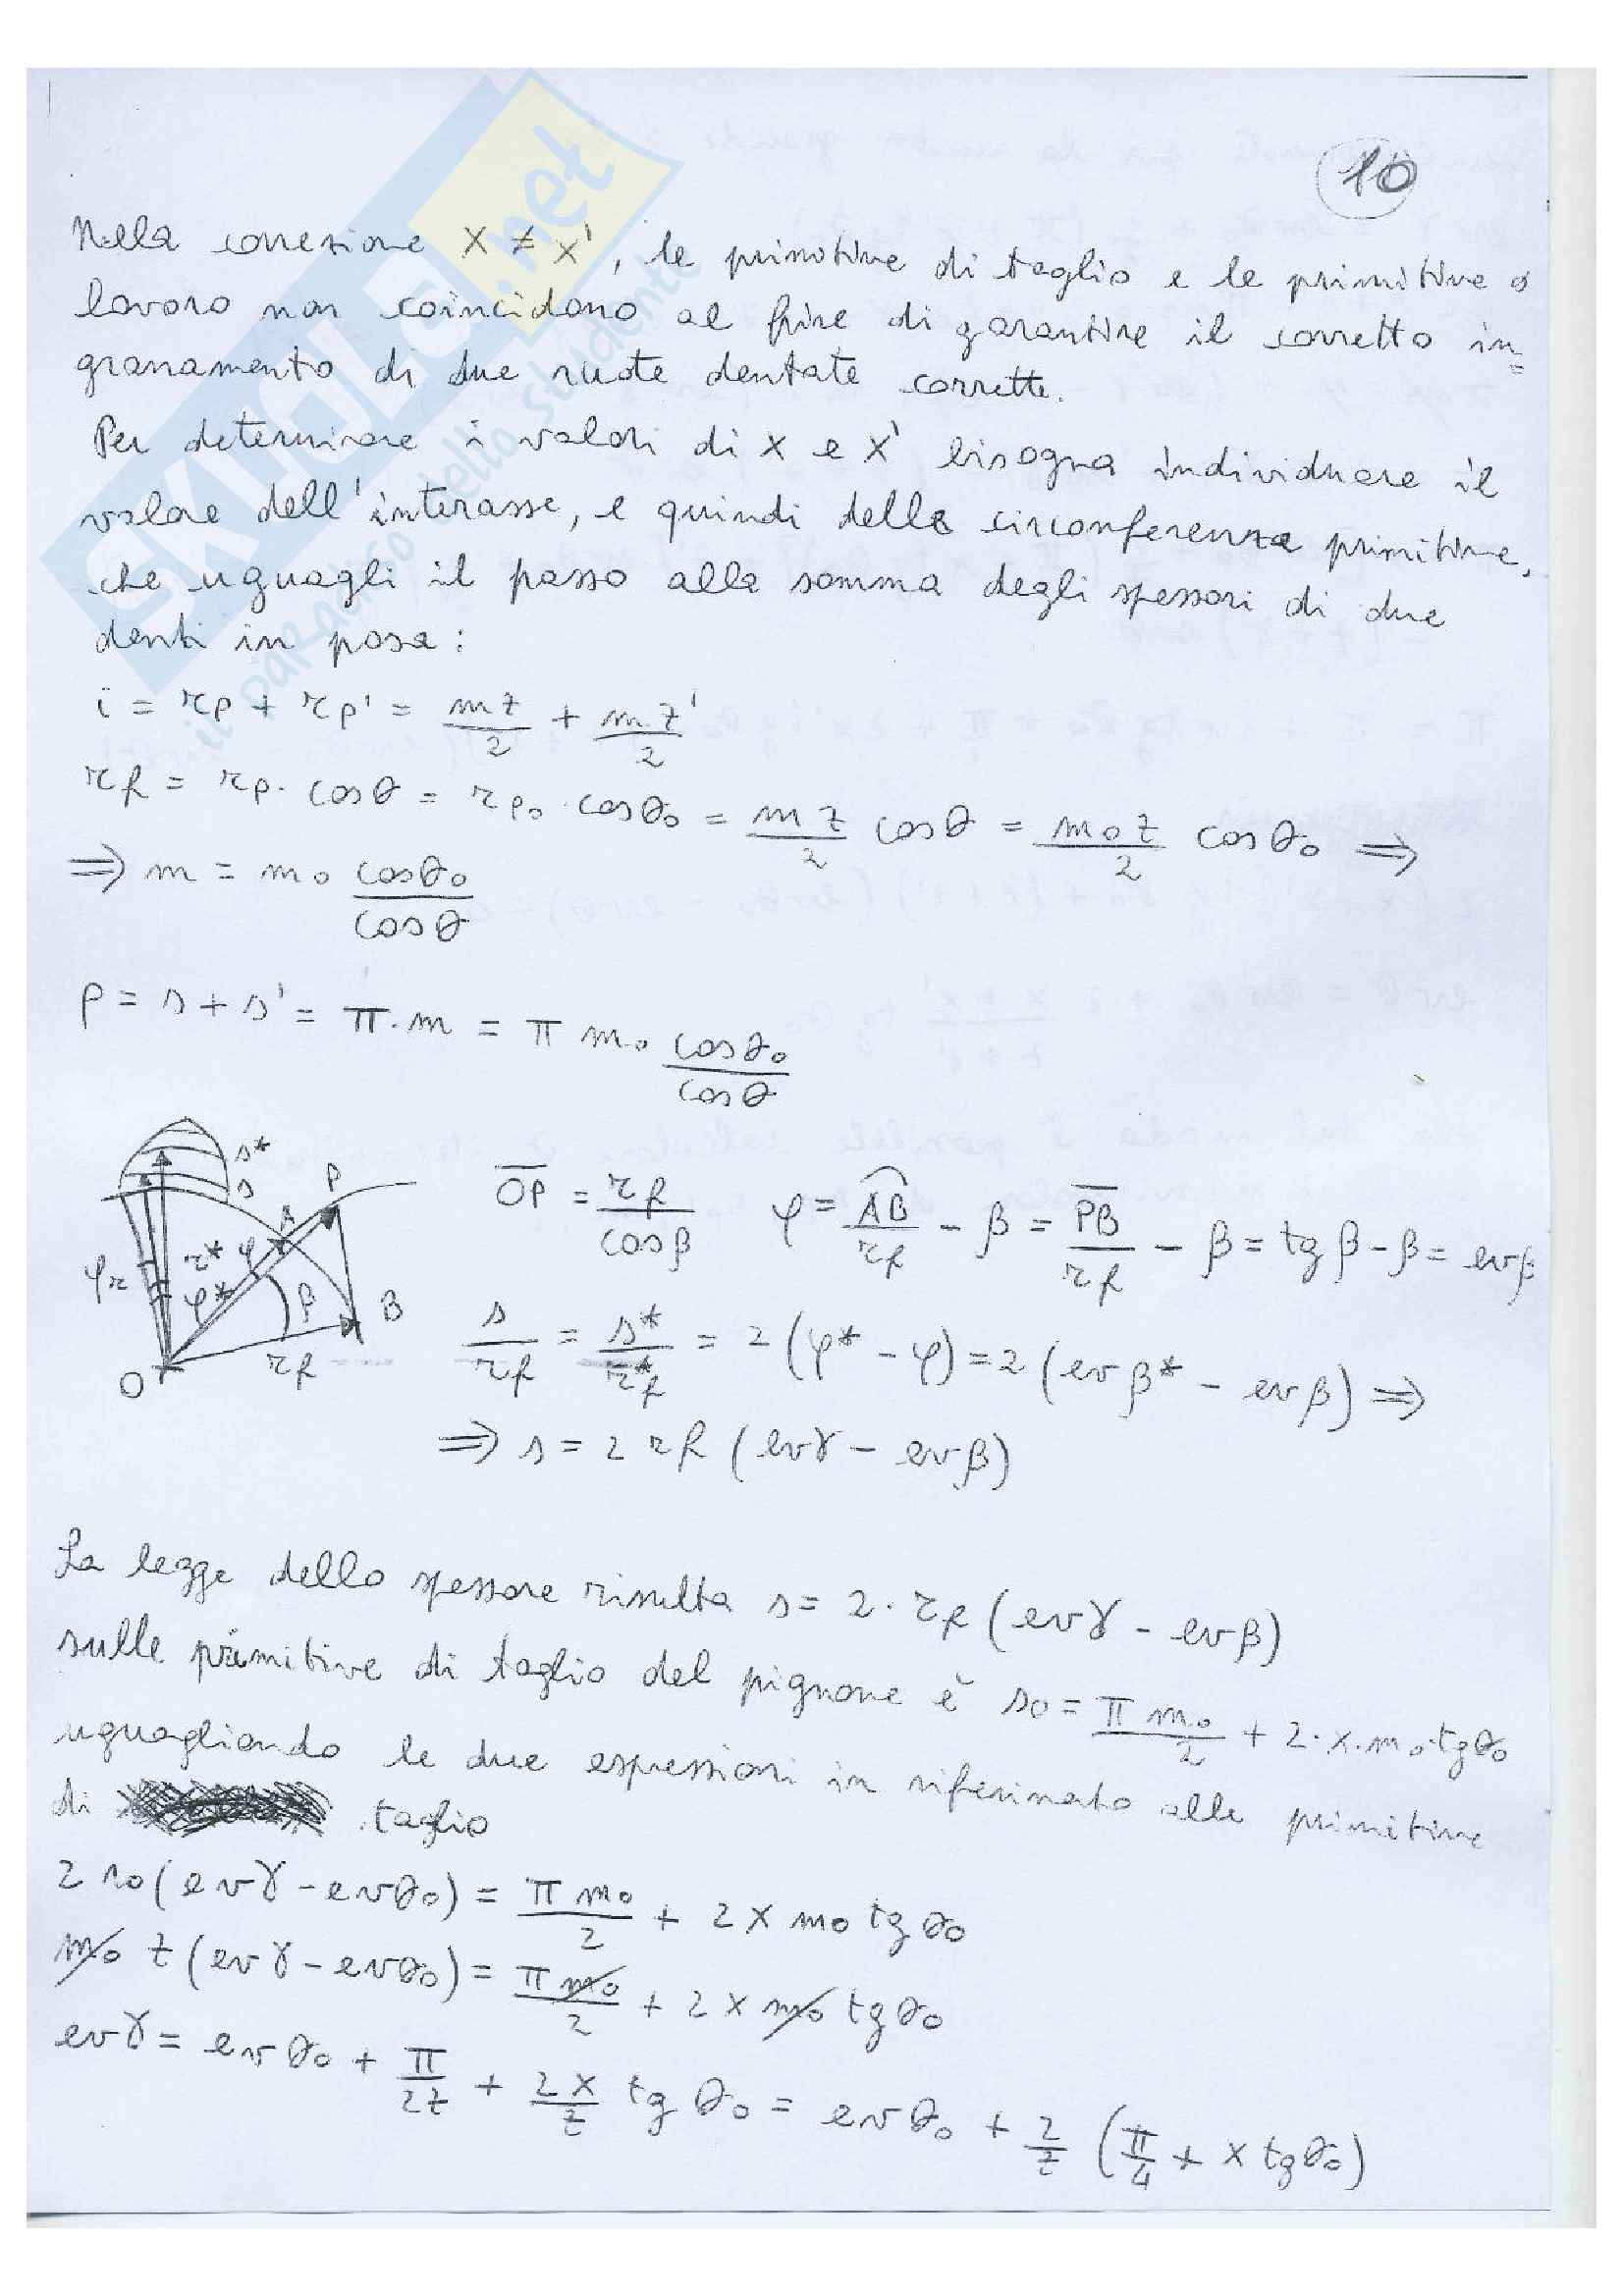 10
Nella correzione x ≠ x', le primitive di taglio e le primitive d
lavoro non coincidono al fine di garantire il corretto in=
granamento di due ruote dentate corrette.
Per determinare i valori di x e x' bisogna individuare il
valore dell'interasse, e quindi delle circonferenze primitive,
che uguagli il passo alla somma degli spessori di due
denti in posa:
i = rp + rp' = mz/2 + mz'/2
rf = rp · cosθ = rp₀ · cosθ₀ = mz/2 cosθ = m₀z/2 cosθ₀ ⇒
⇒ m = m₀ cosθ₀/cosθ
p = s + s' = π·m = π m₀ cosθ₀/cosθ
s*
s
P
A
φr
r*
φ
φ*
β
B
rf
O
OP = rf/cosβ φ = AB/rf - β = PB/rf - β = tgβ - β = evβ
s/rf = s*/r*f = 2(φ* - φ) = 2(evβ* - evβ) ⇒
⇒ s = 2 rf (evγ - evβ)
La legge dello spessore risulta s = 2 · rf (evγ - evβ)
sulle primitive di taglio del pignone è s₀ = πm₀/2 + 2·x·m₀·tgθ₀
uguagliando le due espressioni in riferimato alle primitive
di taglio
2 r₀(evγ - evθ₀) = πm₀/2 + 2x m₀ tgθ₀
m₀ z(evγ - evθ₀) = πm₀/2 + 2x m₀ tgθ₀
evγ = evθ₀ + π/2z + 2x/z tgθ₀ = evθ₀ + 2/z (π/4 + x tgθ₀)
SKUOLA.net
il paradiso dello studente